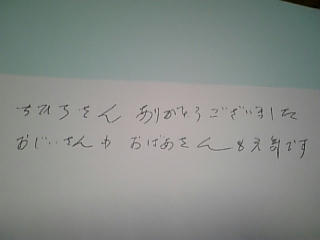 ちひろさん ありがとうございました
おじいさんや おばあさんも元気です